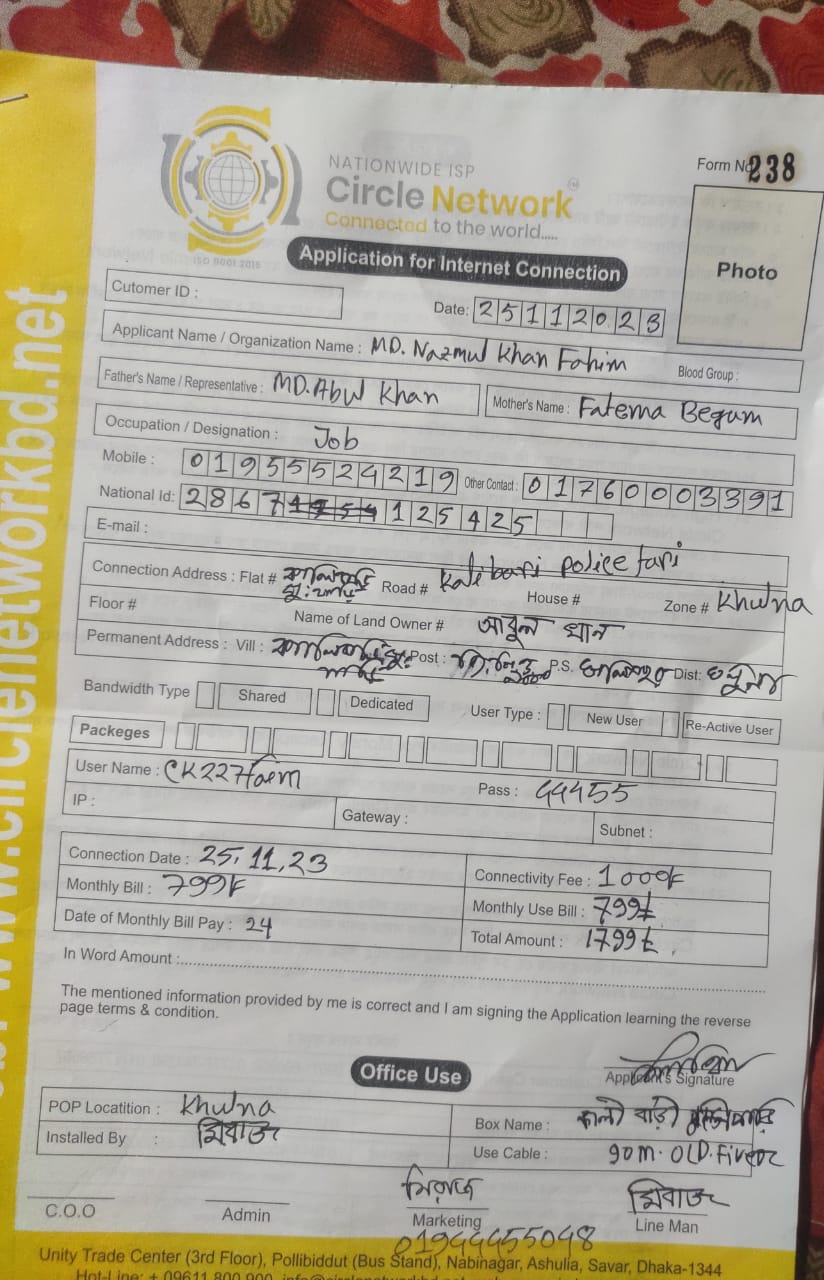 NATIONWIDE ISP
Circle Network
Connected to the world.....
ISO 9001 2015
Form No 238
Photo
Application for Internet Connection
Cutomer ID :
Date: 25112023
Applicant Name / Organization Name : MD. Nazmul Khan Fahim
Blood Group :
Father's Name / Representative : MD. Abul Khan
Mother's Name : Fatema Begum
Occupation / Designation : Job
Mobile : 01955524219 Other Contact : 01760003391
National Id: 2867 125425
E-mail :
Connection Address : Flat # Road # Kali bari police fari House # Zone # Khulna
Floor # Name of Land Owner # আবুল খান
Permanent Address : Vill : Post : P.S. Dist: খুলনা
Bandwidth Type Shared Dedicated User Type : New User Re-Active User
Packeges
User Name : CK227Faem Pass : 44455
IP : Gateway : Subnet :
Connection Date : 25.11.23 Connectivity Fee : 1000৳
Monthly Bill : 799৳ Monthly Use Bill : 799৳
Date of Monthly Bill Pay : 24 Total Amount : 1799৳
In Word Amount :
The mentioned information provided by me is correct and I am signing the Application learning the reverse
page terms & condition.
Applicant's Signature
Office Use
POP Locatition : Khulna Box Name : কালী বাড়ী
Installed By : মিরাজ Use Cable : 90m. OLD.
C.O.O Admin মিরাজ Marketing মিরাজ Line Man
01944455048
Unity Trade Center (3rd Floor), Pollibiddut (Bus Stand), Nabinagar, Ashulia, Savar, Dhaka-1344
www.circlenetworkbd.net